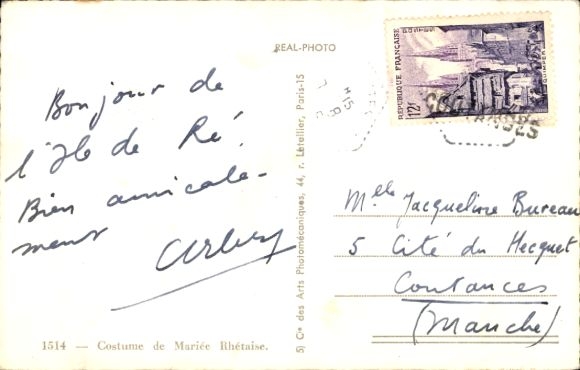 REAL-PHOTO
Bonjour de
l'Ile de Ré.
Bien amicale-
ment
1514 — Costume de Mariée Rhétaise.
5) Cie des Arts Photomécaniques, 44, r. Letellier, Paris-15
RÉPUBLIQUE FRANÇAISE
POSTES
QUIMPER
12F
Melle Jacqueline Bureau
5 Cité du Hecquet
Coutances
(Manche)